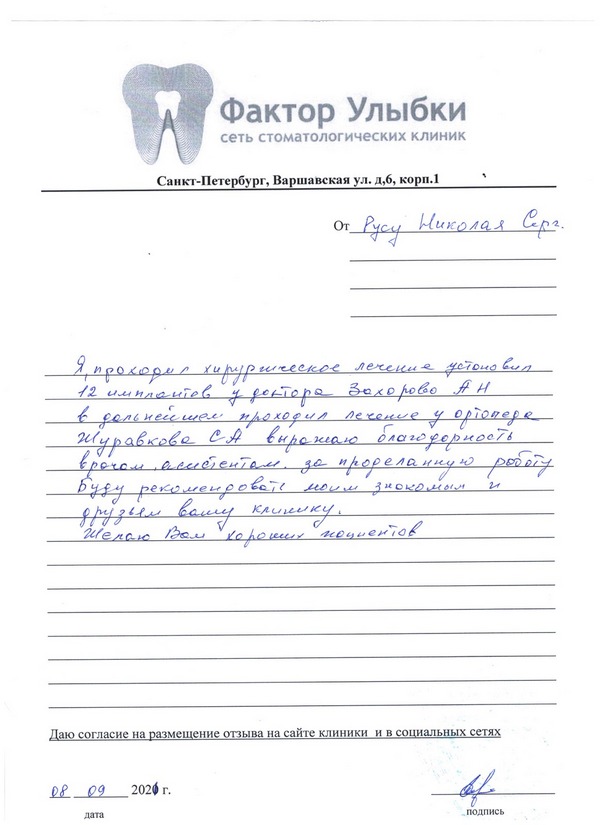 Фактор Улыбки
сеть стоматологических клиник
Санкт-Петербург, Варшавская ул. д,6, корп.1
От Русу Николая Серг.
Я, проходил хирургическое лечение установил
12 имплантов у доктора Захарово АН
в дальнейшем проходил лечение у ортопеда
Журавкова СА выражаю благодорность
врачам, асистентам. за проделанную работу
Буду рекомендовать моим знакомым и
друзьям вашу клинику.
Желаю Вам хороших пациентов
Даю согласие на размещение отзыва на сайте клиники и в социальных сетях
08 09 2021 г.
дата
подпись